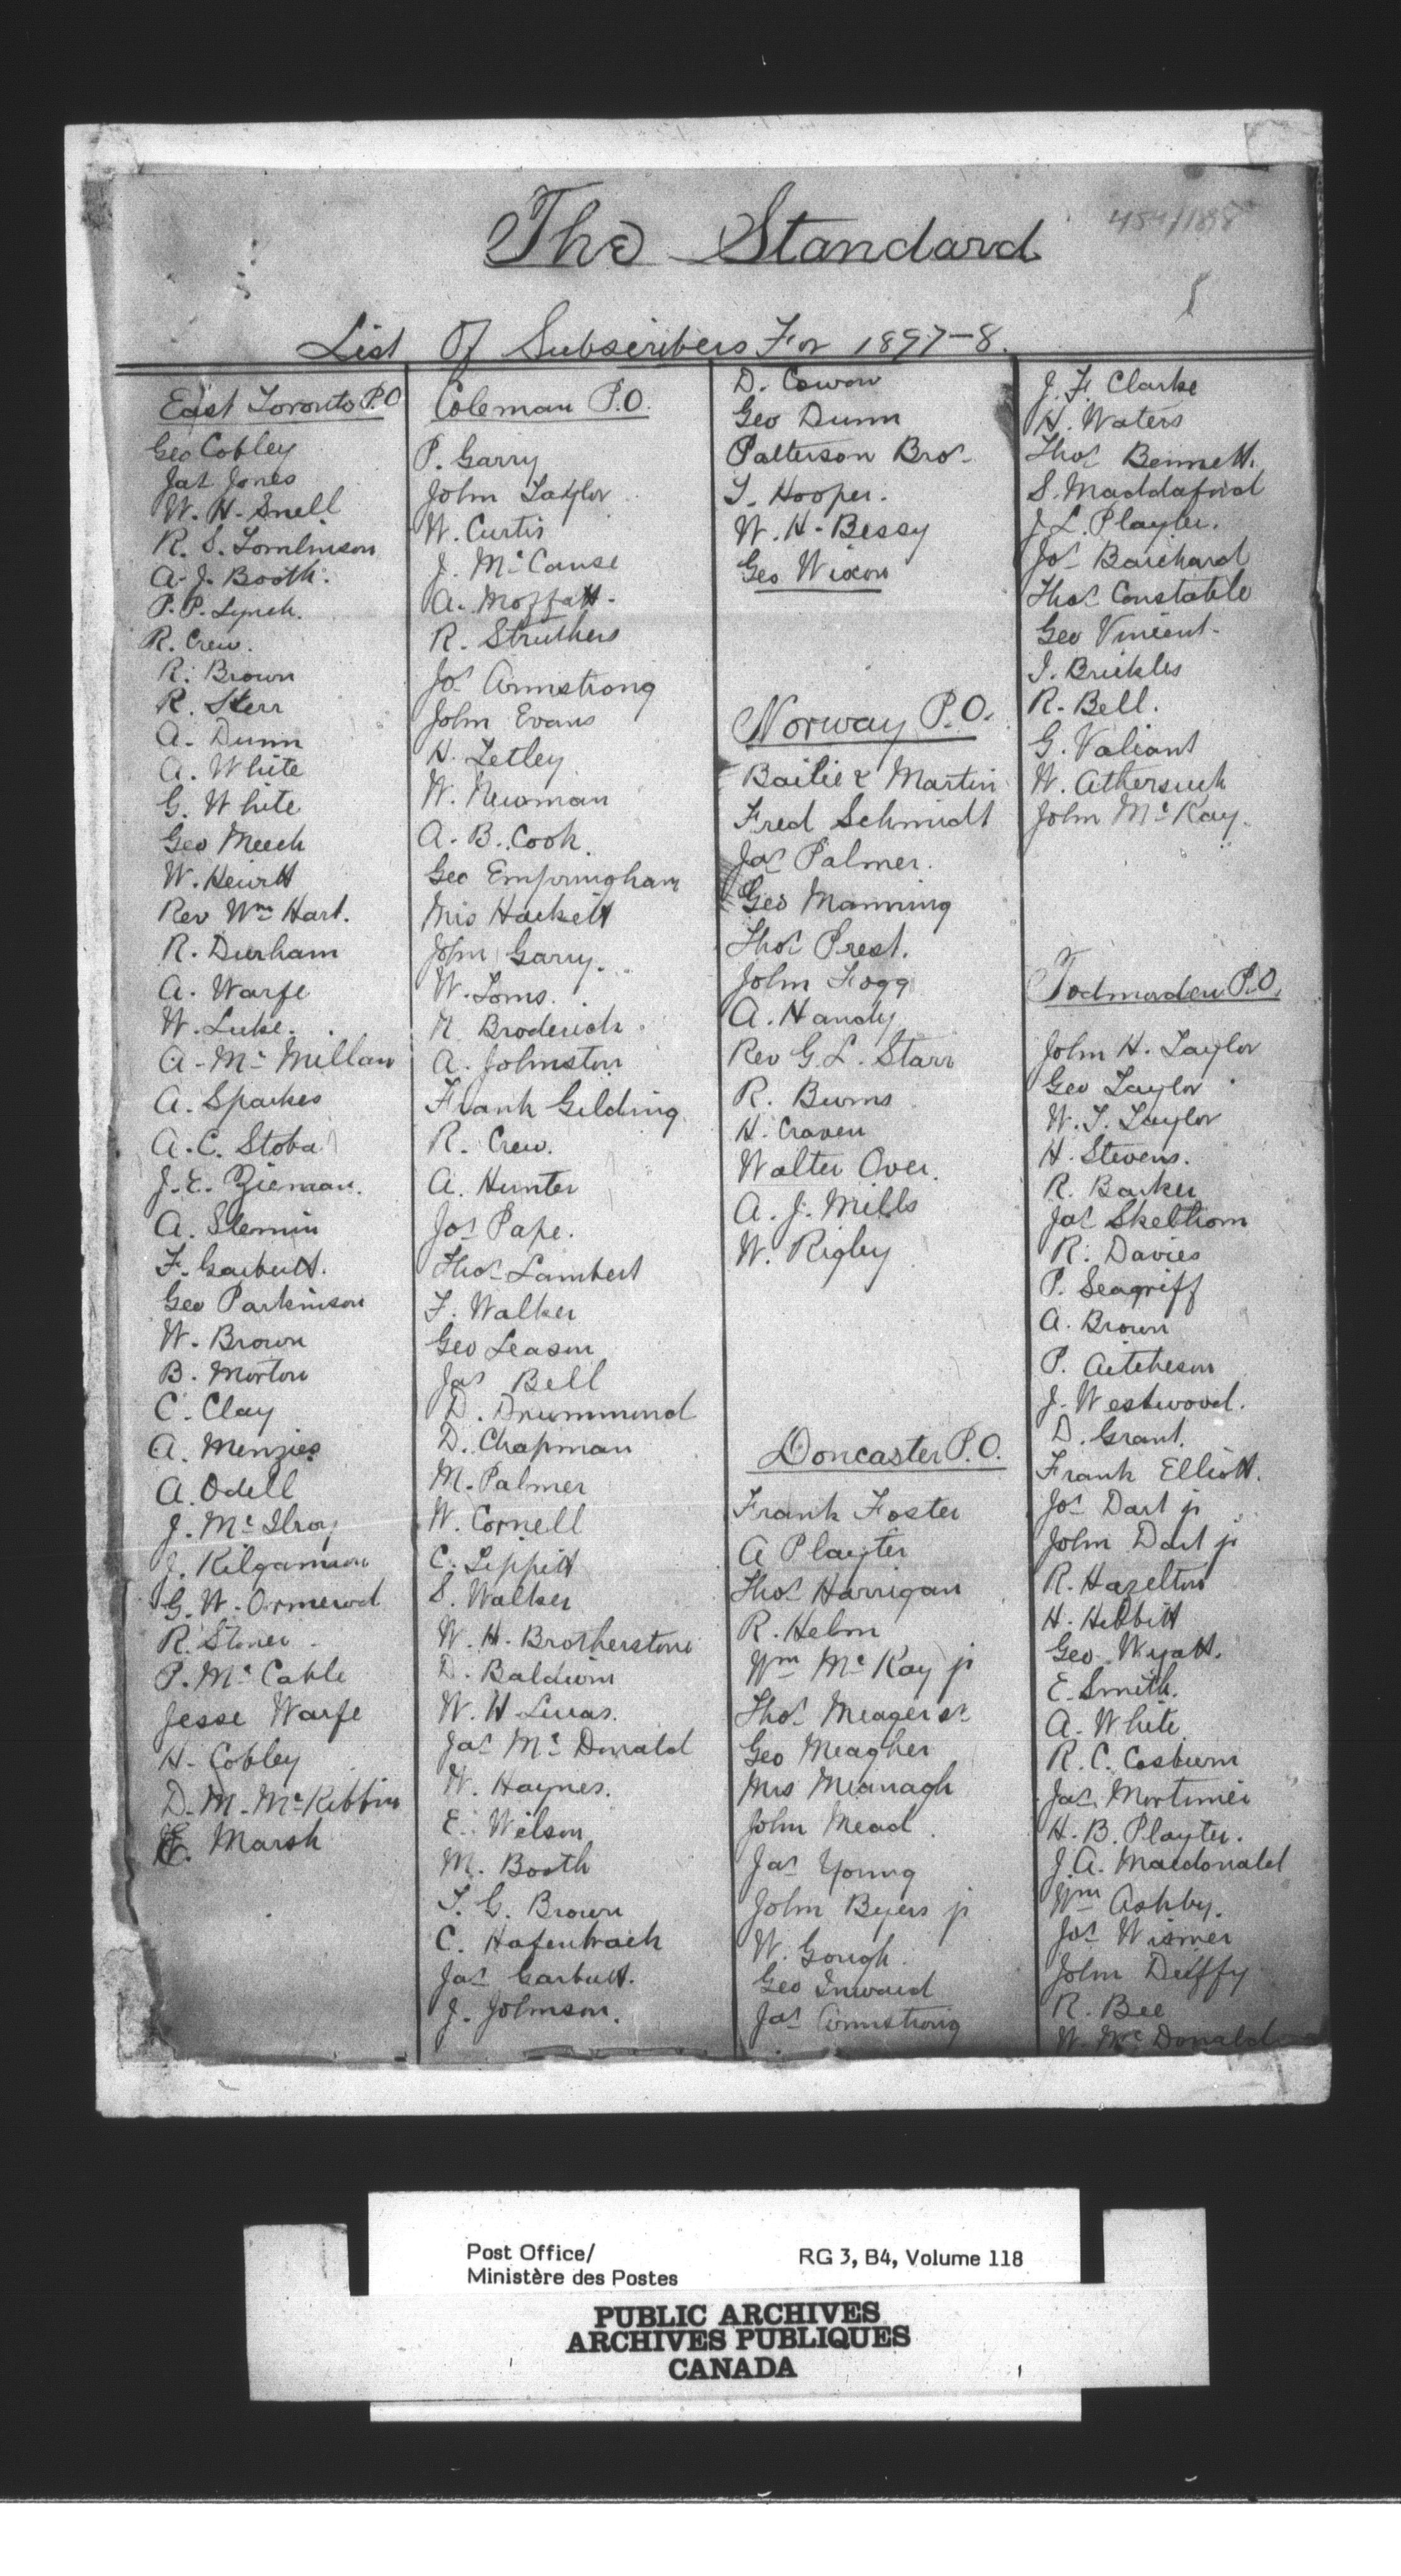 454/1898
The Standard
List Of Subscribers For 1897-8.
East Toronto P.O
Geo Cobley
Jas Jones
W. H. Snell
R. S. Tomlinson
A. J. Booth.
P. P. Lynch.
R. Crew.
R. Brown
R. Kerr
A. Dunn
A. White
G. White
Geo Meech
W. Hewitt
Rev Wm Hart.
R. Durham
A. Warfe
W. Luke.
A. Mc Millan
A. Sparkes
A. C. Stoba
J. E. Zieman.
A. Slemin
F. Garbutt.
Geo Parkinson
W. Brown
B. Morton
C. Clay
A. Menzies
A. Odell
J. Mc Ilroy
J. Kilgannon
G. W. Ormerod
R. Stoner
P. Mc Cable
Jesse Warfe
H. Cobley
D. M. McKibbin
E. Marsh
Coleman P.O.
P. Garry
John Taylor
W. Curtis
J. Mc Cause
A. Moffatt.
R. Struthers
Jos Armstrong
John Evans
H. Tetley
W. Newman
A. B. Cook.
Geo Empringham
Mrs Hackett
John Garry.
W. Toms.
N. Broderick
A. Johnston
Frank Gilding
R. Crew.
A. Hunter
Jos Pape.
Thos Lambert
F. Walker
Geo Leason
Jas Bell
D. Drummond
D. Chapman
M. Palmer
W. Cornell
C. Lippitt
S. Walker
W. H. Brotherstone
D. Baldwin
W. H Lucas.
Jas Mc Donald
W. Haynes.
E. Wilson
M. Booth
T. G. Brown
C. Hafenbrach
Jas Garbutt.
J. Johnson.
D. Cowan
Geo Dunn
Patterson Bros
T. Hooper.
W. H. Bessy
Geo Wixon
Norway P.O.
Bailie & Martin
Fred Schmidt
Jas Palmer.
Geo Manning
Thos Prest.
John Fogg
A. Handy
Rev G. L. Starr
R. Burns
H. Craven
Walter Over.
A. J. Mills
W. Rigby
Doncaster P.O.
Frank Foster
A Playter
Thos Harrigan
R. Helm
Wm Mc Kay jr
Thos Meager sr
Geo Meagher
Mrs Meanagh
John Mead
Jas Young
John Byers jr
W. Gough.
Geo Inward
Jas Armstrong
J. F. Clarke
H. Waters
Thos Bennett.
S. Maddaford
J. L. Playter.
Jos Barchard
Thos Constable
Geo Vincent.
J. Brickles
R. Bell.
G. Valiant
W. Athersuch
John Mc Kay.
Todmorden P.O.
John H. Taylor
Geo Taylor
W. T. Taylor
H. Stevens.
R. Barker
Jas Skelthorn
R. Davies
P. Seagriff
A. Brown
P. Aitcheson
J. Westwood.
D. Grant.
Frank Elliott.
Jos Dart jr
John Dart jr
R. Hazelton
H. Hebbitt
Geo Wyatt.
E. Smith.
A. White
R. C. Cosburn
Jas Mortimer
H. B. Playter.
J. A. Macdonald
Wm Ashby.
Jos Wismer
John Duffy
R. Bee
W. Mc Donald
Post Office/
Ministère des Postes
RG 3, B4, Volume 118
PUBLIC ARCHIVES
ARCHIVES PUBLIQUES
CANADA